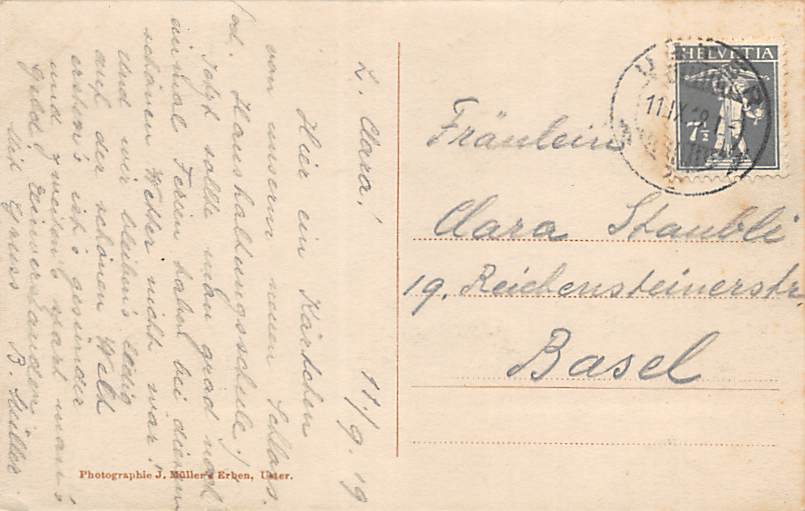 L. Clara! 11./9. 19
Hier ein Kärtchen
von unserm neuen Schloss.
(od. Haushaltungsschule!)
Jetzt sollte man grad noch
einmal Ferien haben bei diesem
schönen Wetter nicht war!
Und wir bleiben's ledig
auf der schönen Welt
erstens ist's gesünder
und zweitens spart man's
Geld. Einverstanden.
Mit Gruss B. Müller.
Photographie J. Müller's Erben, Uster.
HELVETIA
7½
USTER
11.IX.19
Fräulein
Clara Staubli
19. Reichensteinerstr.
Basel